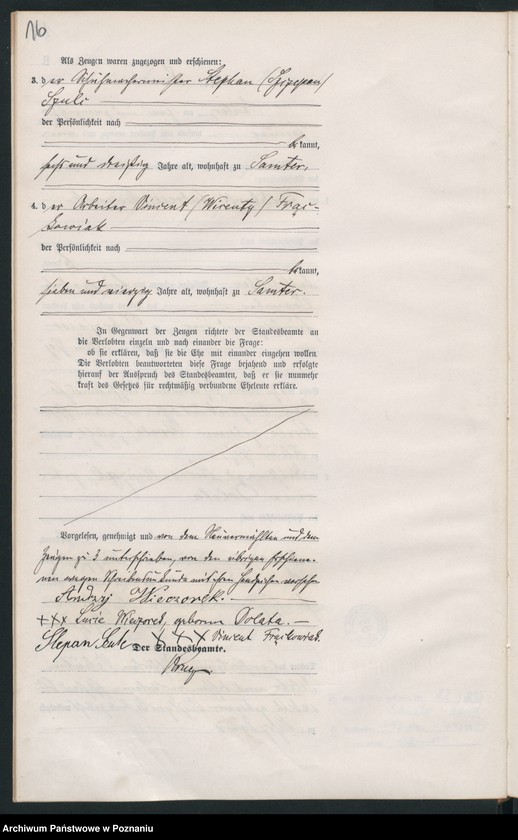 16
Als Zeugen waren zugezogen und erschienen:
3. der Schuhmachermeister Stephan /Szczepan/
Szulc
der Persönlichkeit nach
bekannt,
sechs und dreißig Jahre alt, wohnhaft zu Samter,
4. der Arbeiter Vincent /Wincenty/ Frąc-
kowiak
der Persönlichkeit nach
bekannt,
sieben und vierzig Jahre alt, wohnhaft zu Samter.
In Gegenwart der Zeugen richtete der Standesbeamte an
die Verlobten einzeln und nach einander die Frage:
ob sie erklären, daß sie die Ehe mit einander eingehen wollen.
Die Verlobten beantworteten diese Frage bejahend und erfolgte
hierauf der Ausspruch des Standesbeamten, daß er sie nunmehr
kraft des Gesetzes für rechtmäßig verbundene Eheleute erkläre.
Vorgelesen, genehmigt und von dem Neuvermählten und dem
Zeugen zu 3 unterschrieben, von den übrigen Erschiene-
nen wegen Schreibunkunde mit ihren Handzeichen versehen
Andrzj Wieczorek.
+++ Lucie Wieczorek, geborene Polata.
Stepan Szulc +++ Vincent Frąckowiak.
Der Standesbeamte.
Archiwum Państwowe w Poznaniu